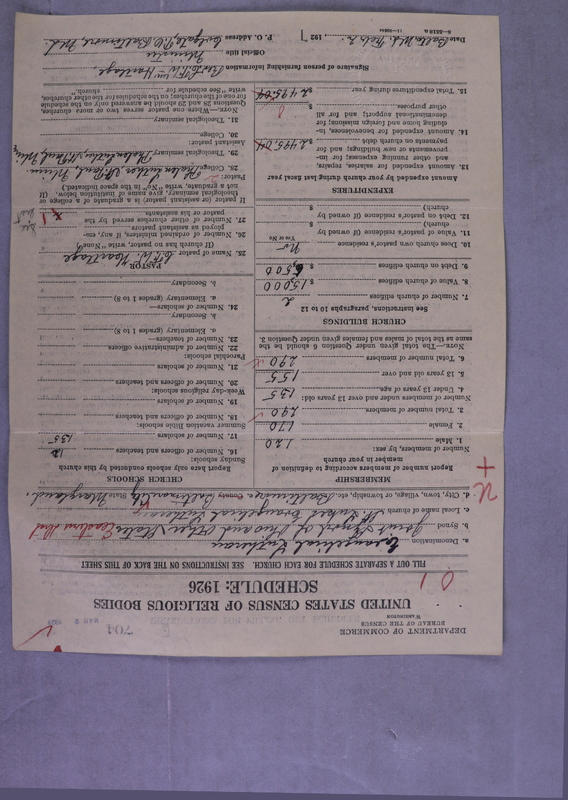 DEPARTMENT OF COMMERCE
BUREAU OF THE CENSUS
WASHINGTON
704
MAR 2 1927
UNITED STATES CENSUS OF RELIGIOUS BODIES
SCHEDULE: 1926
FILL OUT A SEPARATE SCHEDULE FOR EACH CHURCH. SEE INSTRUCTIONS ON THE BACK OF THIS SHEET
a. Denomination Evangelical Lutheran
b. Synod Joint Synod of Ohio and Other States Eastern Dist
c. Local name of church St. Lukes Evangelical Lutheran
d. City, town, village, or township, etc. Baltimore, County Baltimore City State Maryland.
MEMBERSHIP
Report number of members according to definition of member in your church
Number of members, by sex:
1. Male 120
2. Female 170
3. Total number of members 290
Number of members under and over 13 years old:
4. Under 13 years of age 135
5. 13 years old and over 155
6. Total number of members 290
NOTE.—The total given under Question 6 should be the same as the total of males and females given under Question 3.
CHURCH BUILDINGS
See instructions, paragraphs 10 to 12
7. Number of church edifices 2
8. Value of church edifices $ 15,000
9. Debt on church edifices $ 6,500
10. Does church own pastor's residence No
Yes or No
11. Value of pastor's residence (if owned by church) $
12. Debt on pastor's residence (if owned by church) $
EXPENDITURES
Amount expended by your church during last fiscal year
13. Amount expended for salaries, repairs, and other running expenses; for improvements or new buildings; and for payments on church debt $ 2495.04
14. Amount expended for benevolence, including home and foreign missions; for denominational support; and for all other purposes $
15. Total expenditures during year $ 2495.04
CHURCH SCHOOLS
Report here only schools conducted by this church
Sunday schools:
16. Number of officers and teachers 12
17. Number of scholars 135
Summer vacation Bible schools:
18. Number of officers and teachers
19. Number of scholars
Week-day religious schools:
20. Number of officers and teachers
21. Number of scholars
Parochial schools:
22. Number of administrative officers
23. Number of teachers—
a. Elementary (grades 1 to 8)
b. Secondary
24. Number of scholars—
a. Elementary (grades 1 to 8)
b. Secondary
PASTOR
25. Name of pastor
(If church has no pastor, write "None")
26. Number of ordained ministers, if any, employed as assistant pastors
27. Number of other churches served by the pastor or his assistants
If pastor (or assistant pastor) is a graduate of a college or theological seminary, give name of institution below. (If not a graduate, write "No" in the space indicated.)
Pastor:
28. College
29. Theological seminary
Assistant pastor:
30. College
31. Theological seminary
NOTE.—Where one pastor serves two or more churches, Questions 28 and 29 should be answered only on the schedule for one of the churches; on the schedules for the other churches, write "See schedule for church."
Signature of person furnishing information
Official title Minister
P. O. Address Colgate, P.O. Baltimore, Md.
Date Balto, Md.
192 7